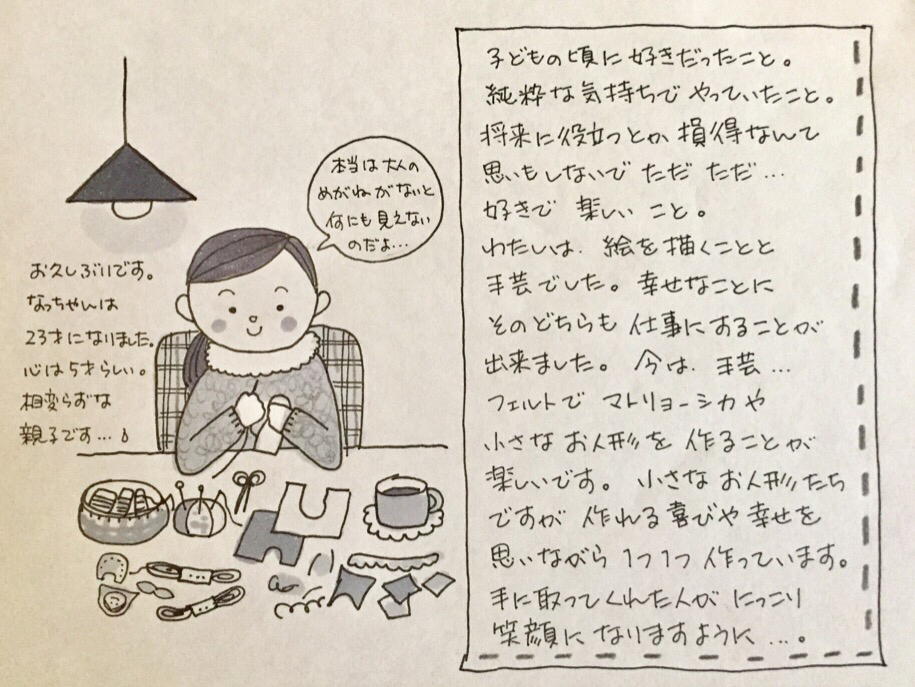 お久しぶりです。
なっちゃんは
23才になりました。
心は5才らしい。
相変らずな
親子です…♪
本当は大人の
めがねがないと
何にも見えない
のだよ…
子どもの頃に好きだったこと。
純粋な気持ちでやっていたこと。
将来に役立つとか損得なんて
思いもしないで ただ ただ …
好きで 楽しい こと。
わたしは、絵を描くことと
手芸でした。幸せなことに
そのどちらも 仕事にすることが
出来ました。 今は、手芸 …
フェルトで マトリョーシカや
小さな お人形を 作ることが
楽しいです。 小さな お人形たち
ですが 作れる喜びや 幸せを
思いながら 1つ1つ 作っています。
手に取ってくれた人が にっこり
笑顔に なりますように …。